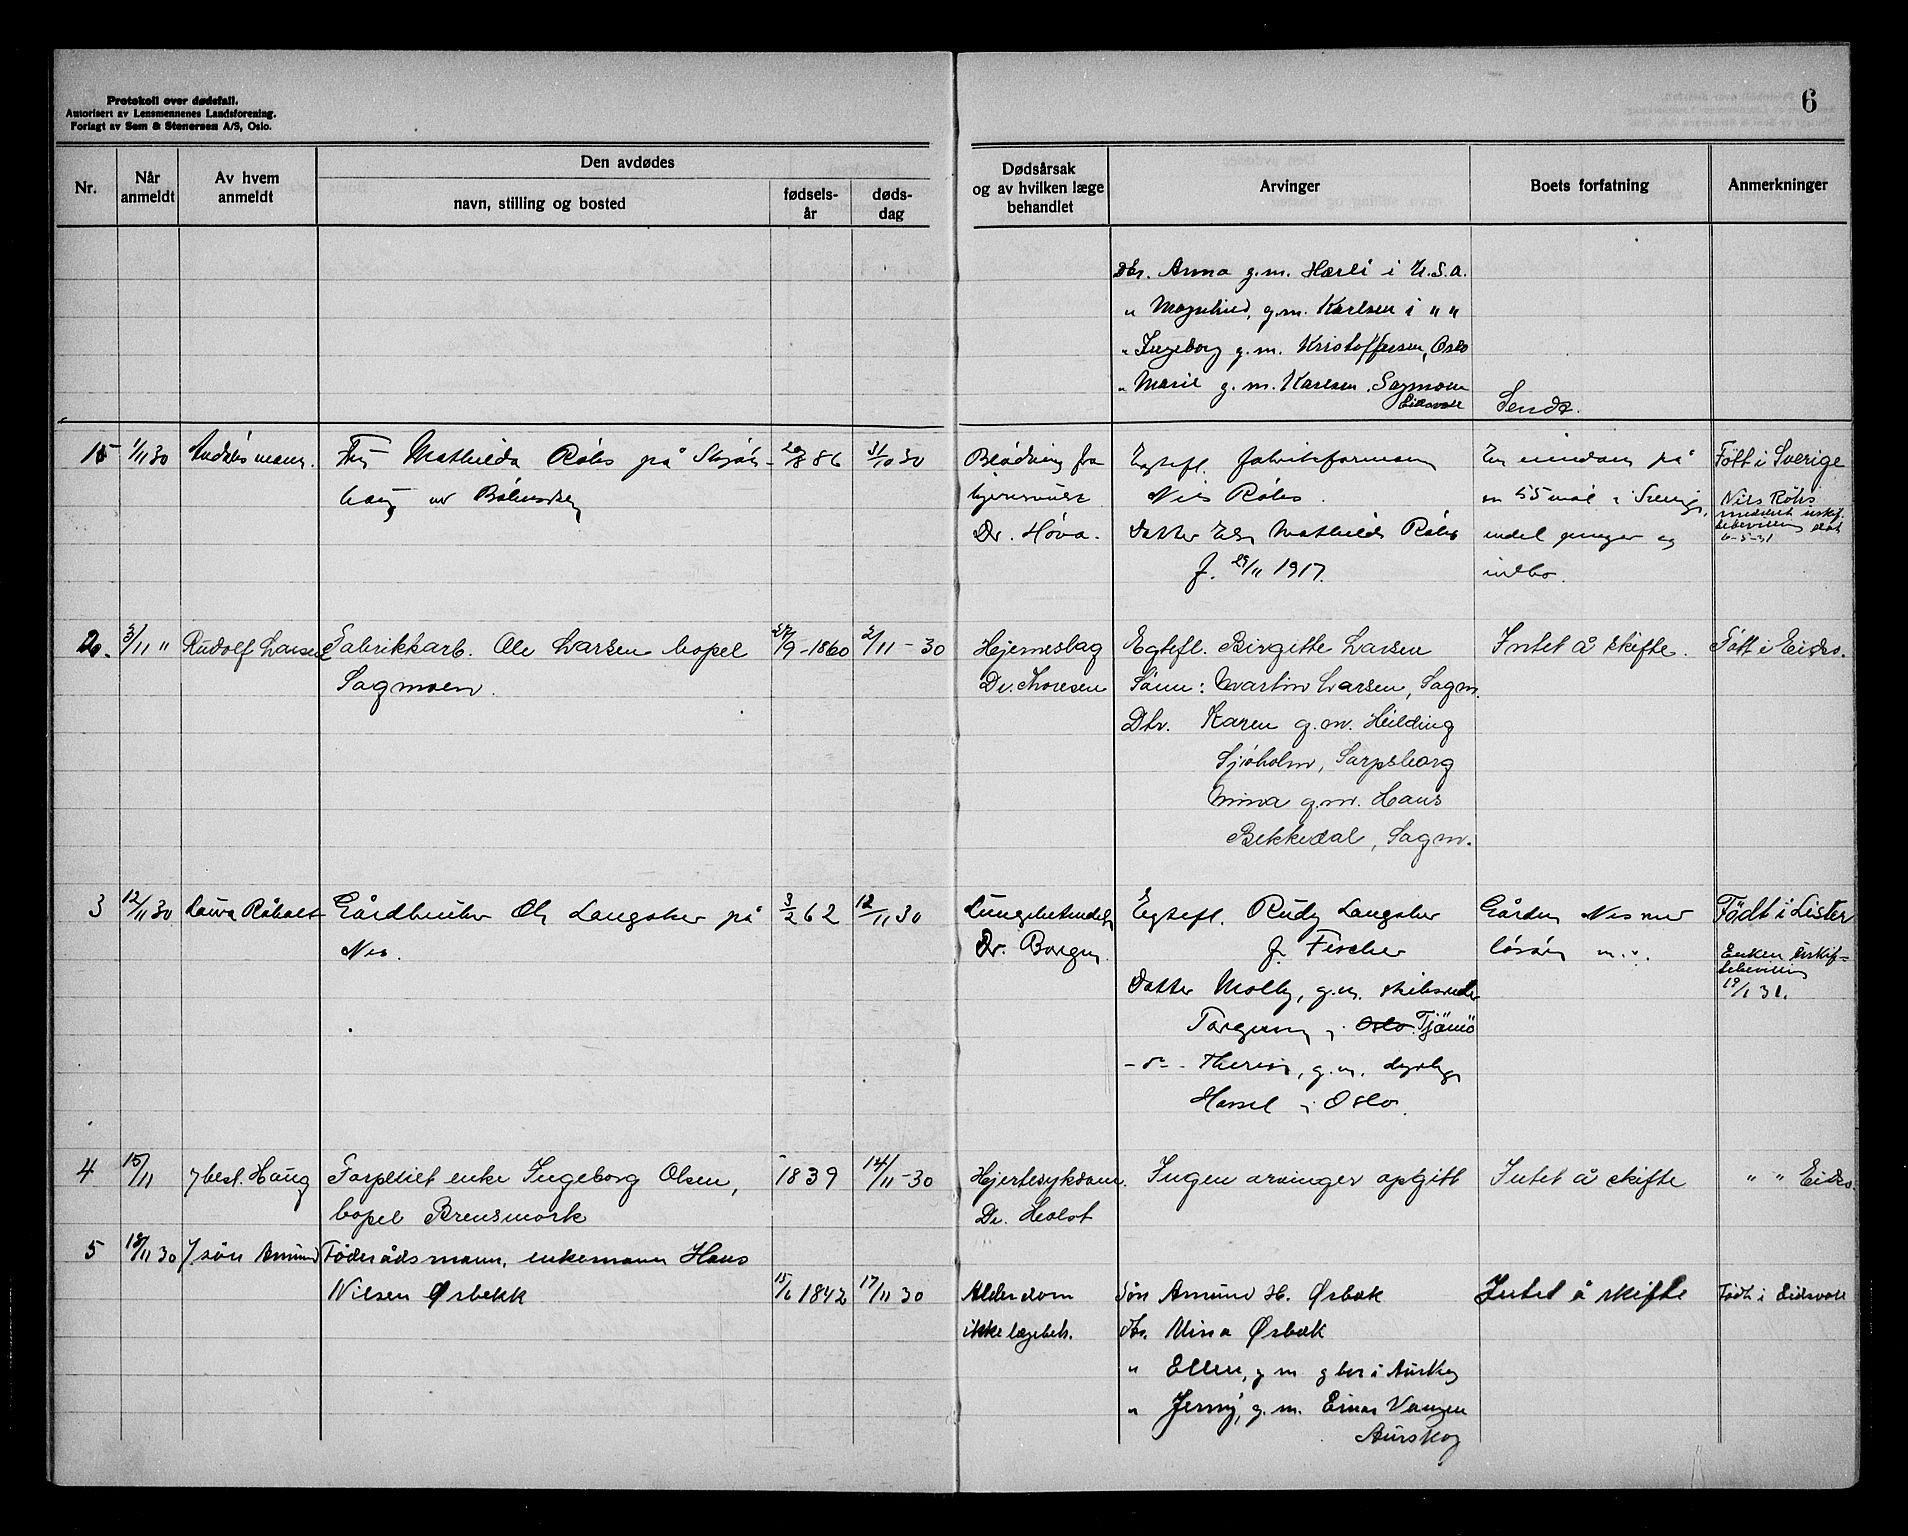 Protokoll over dødsfall.
Autorisert av Lensmennenes Landsforening.
Forlagt av Sem & Stenersen A/S, Oslo.
6
Nr.
Når anmeldt
Av hvem anmeldt
Den avdødes
navn, stilling og bosted
fødsels-år
døds-dag
Dødsårsak og av hvilken læge behandlet
Arvinger
Boets forfatning
Anmerkninger
Dtr. Anna g.m. Hærli i U.S.A.
" Magnhild, g.m. Karlsen i " "
" Ingeborg g.m. Kristoffersen, Oslo
" Marie g.m. Karlsen, Sagmoen
Eidsvoll
Sendt.
1 1/11 30
Fru Mathilda Röhs på
20/8 86 31/10 30
Blødning fra
Dr. Hova.
Egtefl. fabrikformann
Nils Röhs.
Datter Mathilde Röhs
f. 29/11 1917.
En eiendom på
en 55 mål i Sverige,
endel penger og
indbo.
Født i Sverige
Nils Röhs
meddelt uskif-
tebevilling
6-5-31
2. 3/11 " Rudolf Larsen Fabrikkarb. Ole Larsen bopel
Sagmoen.
27/9-1860 2/11-30
Hjerneslag
Dr. Thoresen
Egtefl. Birgitte Larsen
Sønn: Martin Larsen, Sagm.
Dtr. Karen g.m. Heilding
Sjøholm, Sarpsborg
Minna g.m. Hans
Bekkedal, Sagm.
Intet å skifte.
Født i Eidsv.
3 12/11 30 Laura Råholt Gårdbruker Ole Langaker på
Nes.
3/2 62 12/11 30
Lungebetendelse
Dr. Borgen.
Egtefl. Rudy Langaker
f. Fischer
Datter Molly, g.m. skibsreder
i Oslo. Tjömö
g.m. dyrlege
Hassel i Oslo.
Gården Nes med
løsøre m.v.
Født i Lister
Enken uskif-
tebevilling
19/1 31.
4 15/11 v/ best. Haug Forpleiet enke Ingeborg Olsen,
bopel Brensmork
1839 14/11-30
Hjertesykdom.
Dr. Holst
Ingen arvinger opgitt
Intet å skifte
" " Eidsv.
5 18/11 30 v/ søn Amund Föderådsmann, enkemann Hans
Nilsen Ørbekk
15/6 1842 17/11 30
Alderdom
ikke lægebeh.
Søn Amund H. Ørbæk
Dtr. Mina Ørbæk
" Ellen, g.m. i Aurskog
" Jenny, g.m. Einar Vangen
Aurskog
Intet å skifte
Födt i Eidsvoll